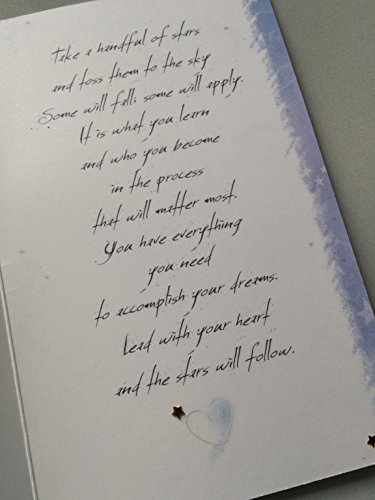 Take a handful of stars
and toss them to the sky
Some will fall; some will apply.
It is what you learn
and who you become
in the process
that will matter most.
You have everything
you need
to accomplish your dreams.
Lead with your heart
and the stars will follow.